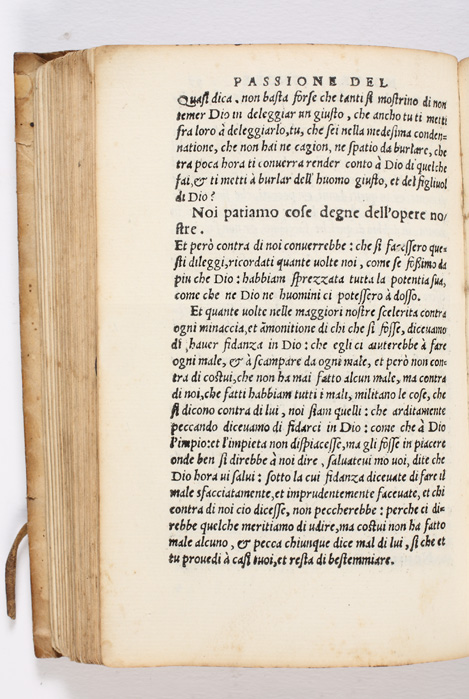 PASSIONE DEL
Quasi dica, non basta forse che tanti si mostrino di non
temer Dio in deleggiar un giusto, che ancho tu ti metti
fra loro à deleggiarlo, tu, che sei nella medesima conden-
natione, che non hai ne cagion, ne spatio da burlare, che
tra poca hora ti conuerra render conto à Dio di quelche
fai, & ti metti à burlar dell' huomo giusto, et del figliuol
di Dio?
Noi patiamo cose degne dell'opere no/
stre.
Et però contra di noi conuerrebbe: che si facessero que-
sti dileggi, ricordati quante uolte noi, come se fossimo da
piu che Dio: habbiam sprezzata tutta la potentia sua,
come che ne Dio ne huomini ci potessero à dosso.
Et quante uolte nelle maggiori nostre scelerita contra
ogni minaccia, et āmonitione di chi che si fosse, diceuamo
di hauer fidanza in Dio: che egli ci aiuterebbe à fare
ogni male, & à scampare da ogni male, et però non con-
tra di costui, che non ha mai fatto alcun male, ma contra
di noi, che fatti habbiam tutti i mali, militano le cose, che
si dicono contra di lui, noi siam quelli: che arditamente
peccando diceuamo di fidarci in Dio: come che à Dio
l'impio: et l'impieta non dispiacesse, ma gli fosse in piacere
onde ben si direbbe à noi dire, saluateui mo uoi, dite che
Dio hora ui salui: sotto la cui fidanza diceuate di fare il
male sfacciatamente, et imprudentemente faceuate, et chi
contra di noi cio dicesse, non peccherebbe: perche ci di-
rebbe quelche meritiamo di udire, ma costui non ha fatto
male alcuno, & pecca chiunque dice mal di lui, si che et
tu prouedi à casi tuoi, et resta di bestemmiare.